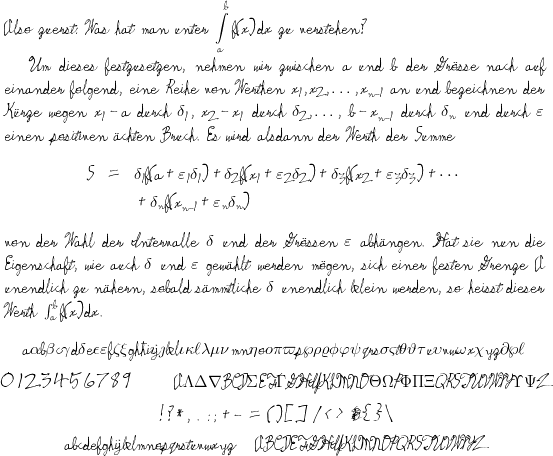 Also zuerst: Was hat man unter ∫_a^b f(x)dx zu verstehen?
Um dieses festzusetzen, nehmen wir zwischen a und b der Grösse nach auf
einander folgend, eine Reihe von Werthen x₁, x₂, . . . , xₙ₋₁ an und bezeichnen der
Kürze wegen x₁ − a durch δ₁, x₂ − x₁ durch δ₂, . . . , b − xₙ₋₁ durch δₙ und durch ε
einen positiven ächten Bruch. Es wird alsdann der Werth der Summe
S = δ₁f(a + ε₁δ₁) + δ₂f(x₁ + ε₂δ₂) + δ₃f(x₂ + ε₃δ₃) + · · ·
+ δₙf(xₙ₋₁ + εₙδₙ)
von der Wahl der Intervalle δ und der Grössen ε abhängen. Hat sie nun die
Eigenschaft, wie auch δ und ε gewählt werden mögen, sich einer festen Grenze A
unendlich zu nähern, sobald sämmtliche δ unendlich klein werden, so heisst dieser
Werth ∫_a^b f(x)dx.
0123456789
!?*, . : ; + − = ( ) [ ] / < > { } \
abcdefghijklmnopqrstuvwxyz ABCDEFGHIJKLMNOPQRSTUVWXYZ